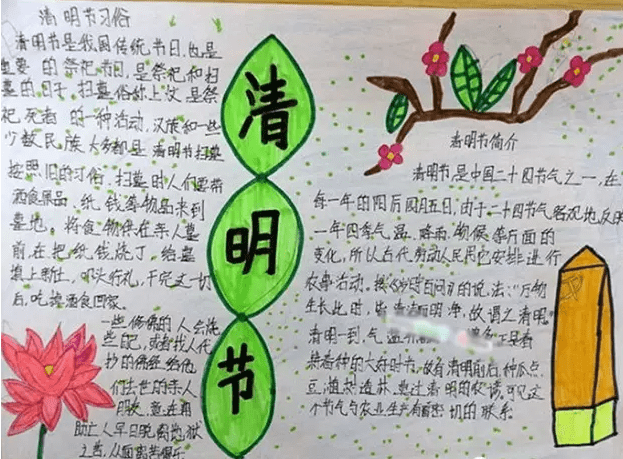 清明节习俗
清明节是我国传统节日,也是
重要的祭祀节日,是祭祀和扫
墓的日子,扫墓俗称上坟,是祭
祀死者的一种活动,汉族和一些
少数民族大多都是清明节扫墓
按照旧的习俗,扫墓时人们要带
酒食果品、纸、钱等物品来到
墓地,将食物供在亲人墓
前,在把纸钱烧了,给墓
填上新土,叩头行礼,干完这一切
后,吃掉酒食回家。
一些修佛的人会
些自己,或者找人代
抄的佛经给他
们去世的亲人
朋友,意在再
助亡人早日脱离地狱
之苦,从而离苦得乐
清
明
节
清明节简介
清明节是中国二十四节气之一,在
每一年的阳历四月五日,由于二十四节气客观地反映
一年四季气温、降雨、物候等方面的
变化,所以古代劳动人民用它安排进行
农事活动。按《岁时百问》的说法:“万物
生长此时,皆清洁而明净,故谓之清明。”
清明一到,气温
春种的大好时节,故有清明前后,种瓜点
豆,植树造林,
清明的农谚,可见这
个节气与农业生产有着密切的联系